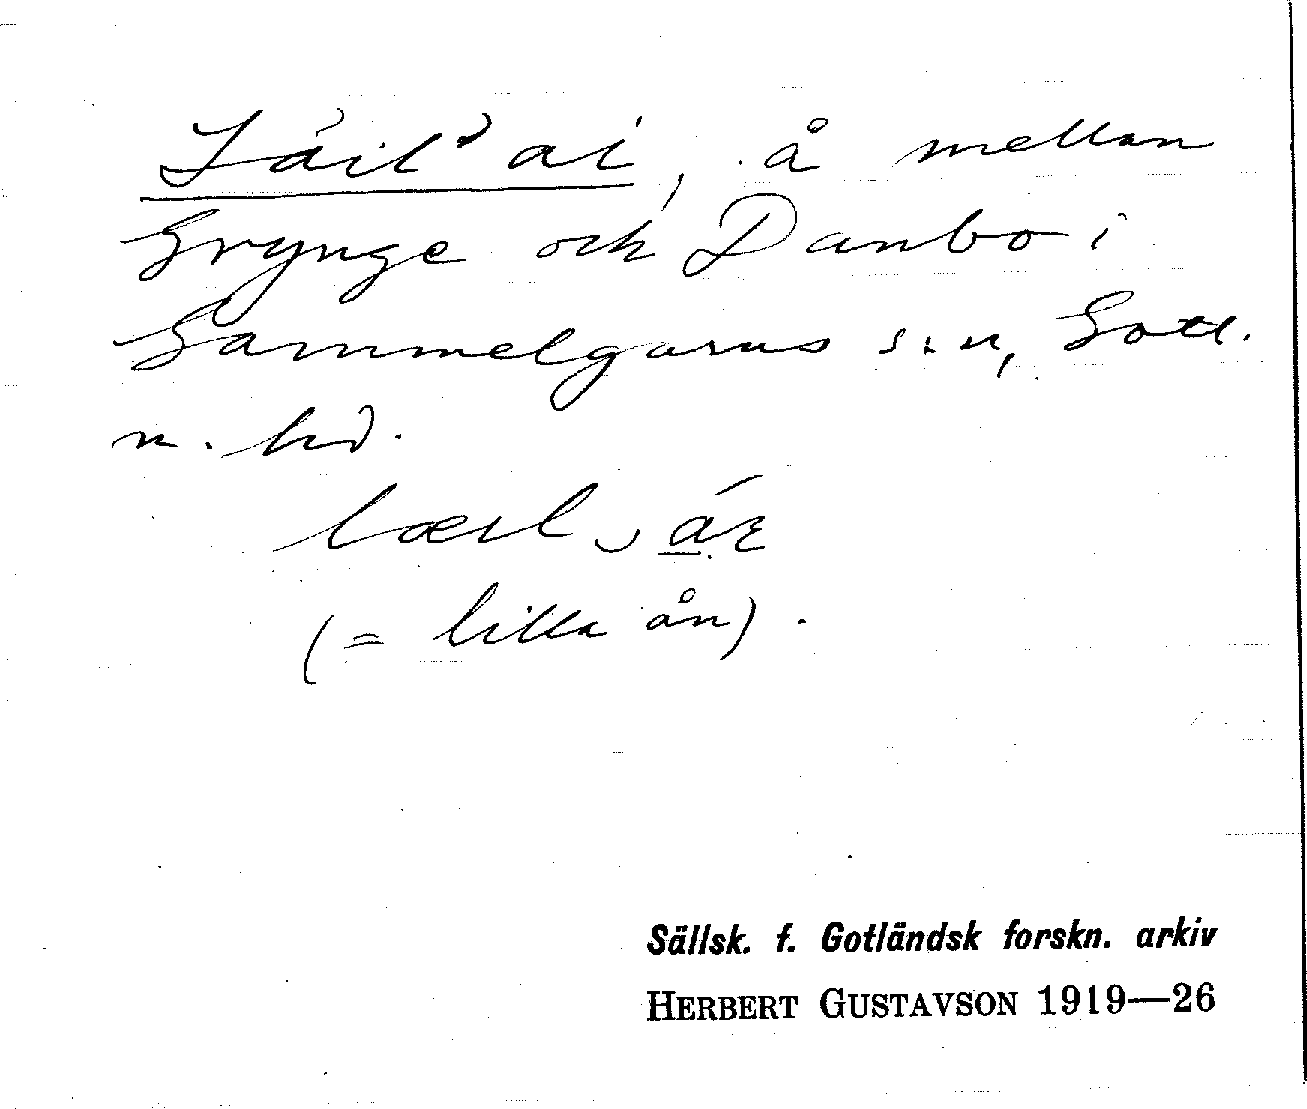 Läil' ai, å mellan
Grynge och Danbo i
Gammelgarns s:n, Gotl.
n. hd.
(= lilla ån).
Sällsk. f. Gotländsk forskn. arkiv
HERBERT GUSTAVSON 1919—26